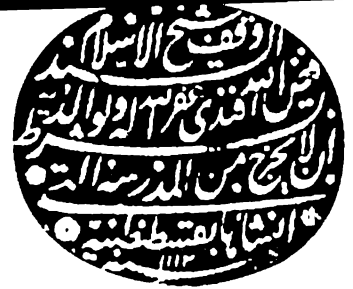 وقف شيخ الاسلام السيد
فيض الله افندى غفر الله له ولوالديه
بشرط ان لا يخرج من المدرسة التى
انشاها بقسطنطينية
سنة ١١١٢